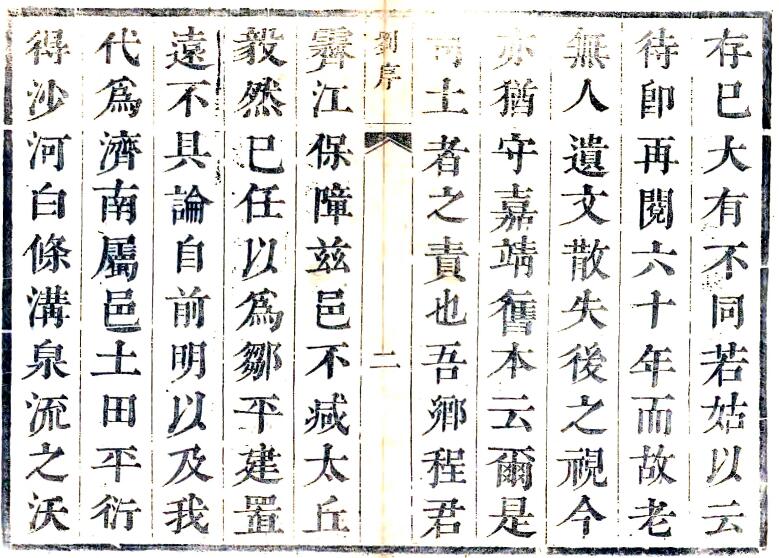 存已大有不同若姑以云
待即再閱六十年而故老
無人遺文散失後之視今
亦猶守嘉靖舊本云爾是
司土者之責也吾鄉程君
劉序
二
霽江保障兹邑不減太丘
毅然已任以爲鄒平建置
遠不具論自前明以及我
代爲濟南屬邑土田平衍
得沙河白條溝泉流之沃